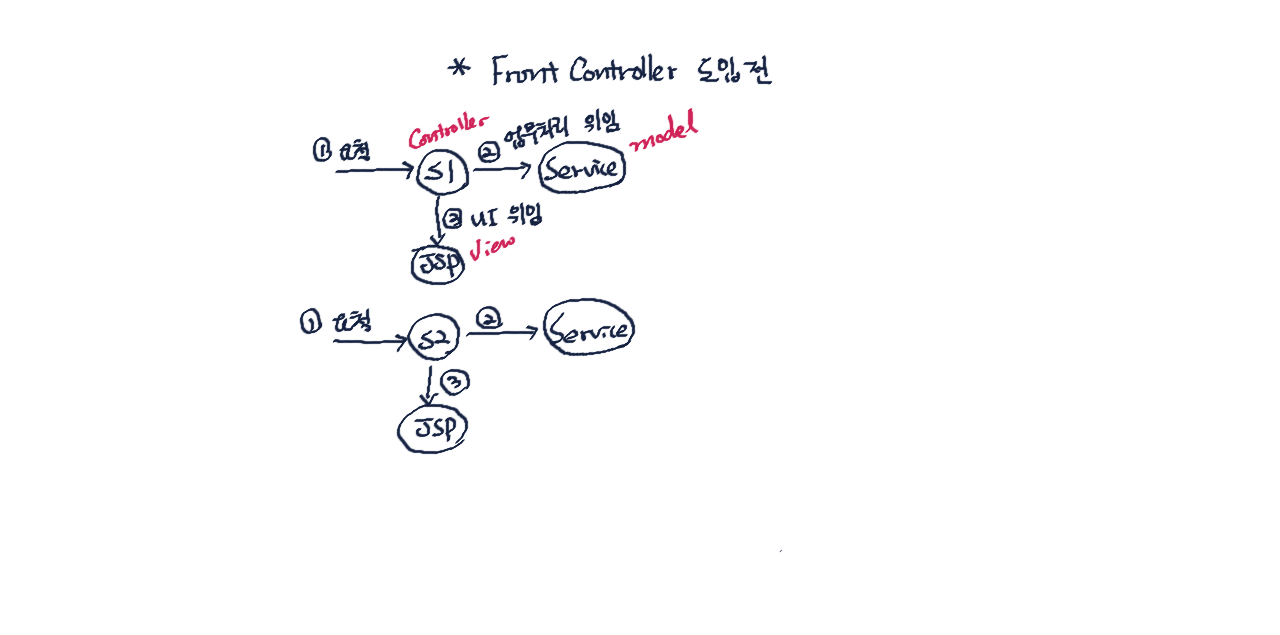 * Front Controller 도입전
① 요청
Controller
② 업무처리 위임
model
S1
Service
③ UI 위임
JSP
View
① 요청
S2
②
Service
③
JSP